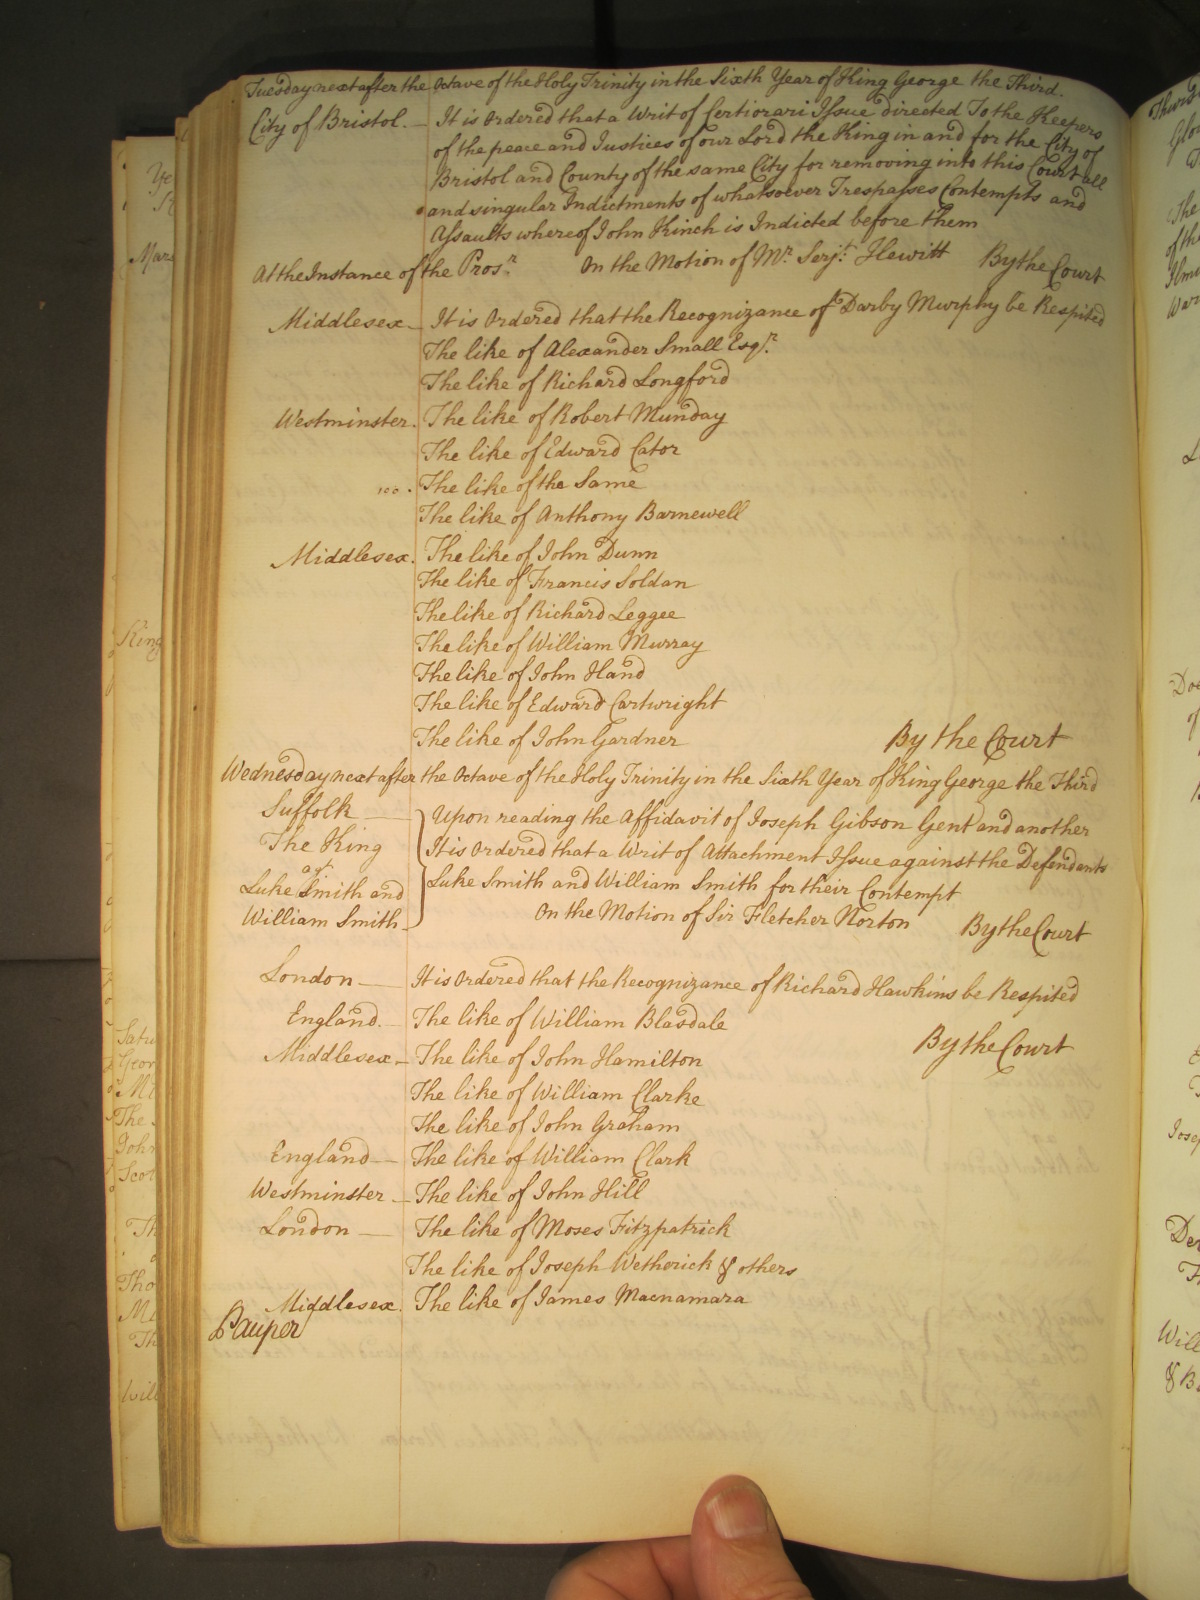 Tuesday next after the Octave of the Holy Trinity in the Sixth Year of King George the Third.
City of Bristol. — It is Ordered that a Writ of Certiorari Issue directed To the Keepers
of the peace and Justices of our Lord the King in and for the City of
Bristol and County of the same City for removing into this Court all
and singular Indictments of whatsoever Trespasses Contempts and
Assaults whereof John Kinch is Indicted before them
At the Instance of the Prosr. On the Motion of Mr. Serjt. Hewitt By the Court
Middlesex — It is Ordered that the Recognizance of Darby Murphy be Respited
The like of Alexander Small Esqr.
The like of Richard Longford
Westminster. The like of Robert Munday
The like of Edward Cator
100. The like of the Same
The like of Anthony Barnewell
Middlesex. The like of John Dunn
The like of Francis Soldan
The like of Richard Leggee
The like of William Murray
The like of John Hand
The like of Edward Cartwright
The like of John Gardner By the Court
Wednesday next after the Octave of the Holy Trinity in the Sixth Year of King George the Third
Suffolk — Upon reading the Affidavit of Joseph Gibson Gent and another
The King It is Ordered that a Writ of Attachment Issue against the Defendants
agt
Luke Smith and Luke Smith and William Smith for their Contempt
William Smith — On the Motion of Sir Fletcher Norton By the Court
London — It is Ordered that the Recognizance of Richard Hawkins be Respited
England. — The like of William Blasdale
Middlesex — The like of John Hamilton By the Court
The like of William Clarke
The like of John Graham
England — The like of William Clark
Westminster — The like of John Hill
London — The like of Moses Fitzpatrick
The like of Joseph Wetherick & others
Middlesex. The like of James Macnamara
Pauper